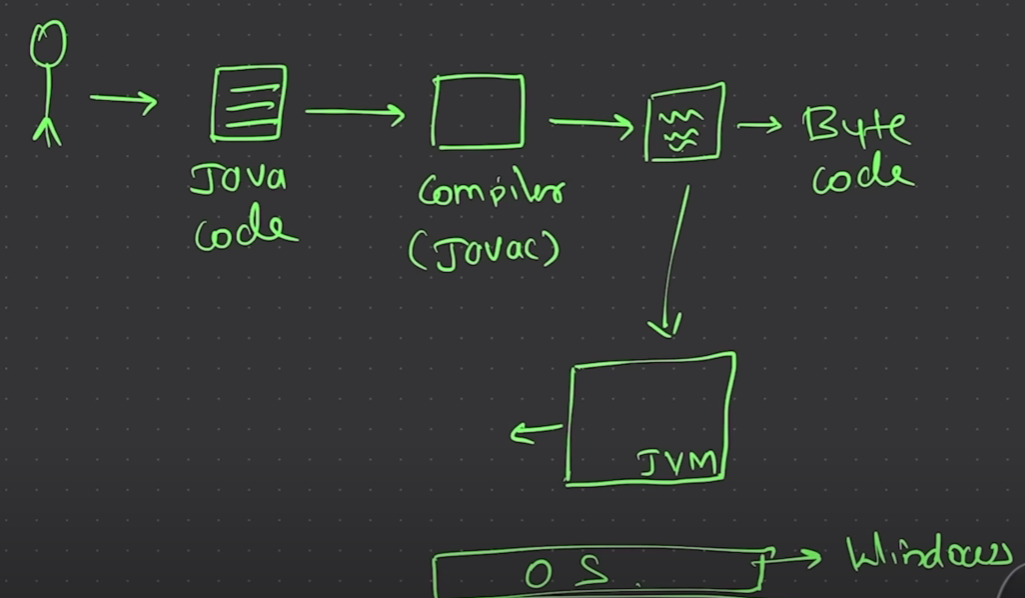 Java
code
Compiler
(Javac)
Byte
code
JVM
OS
Windows